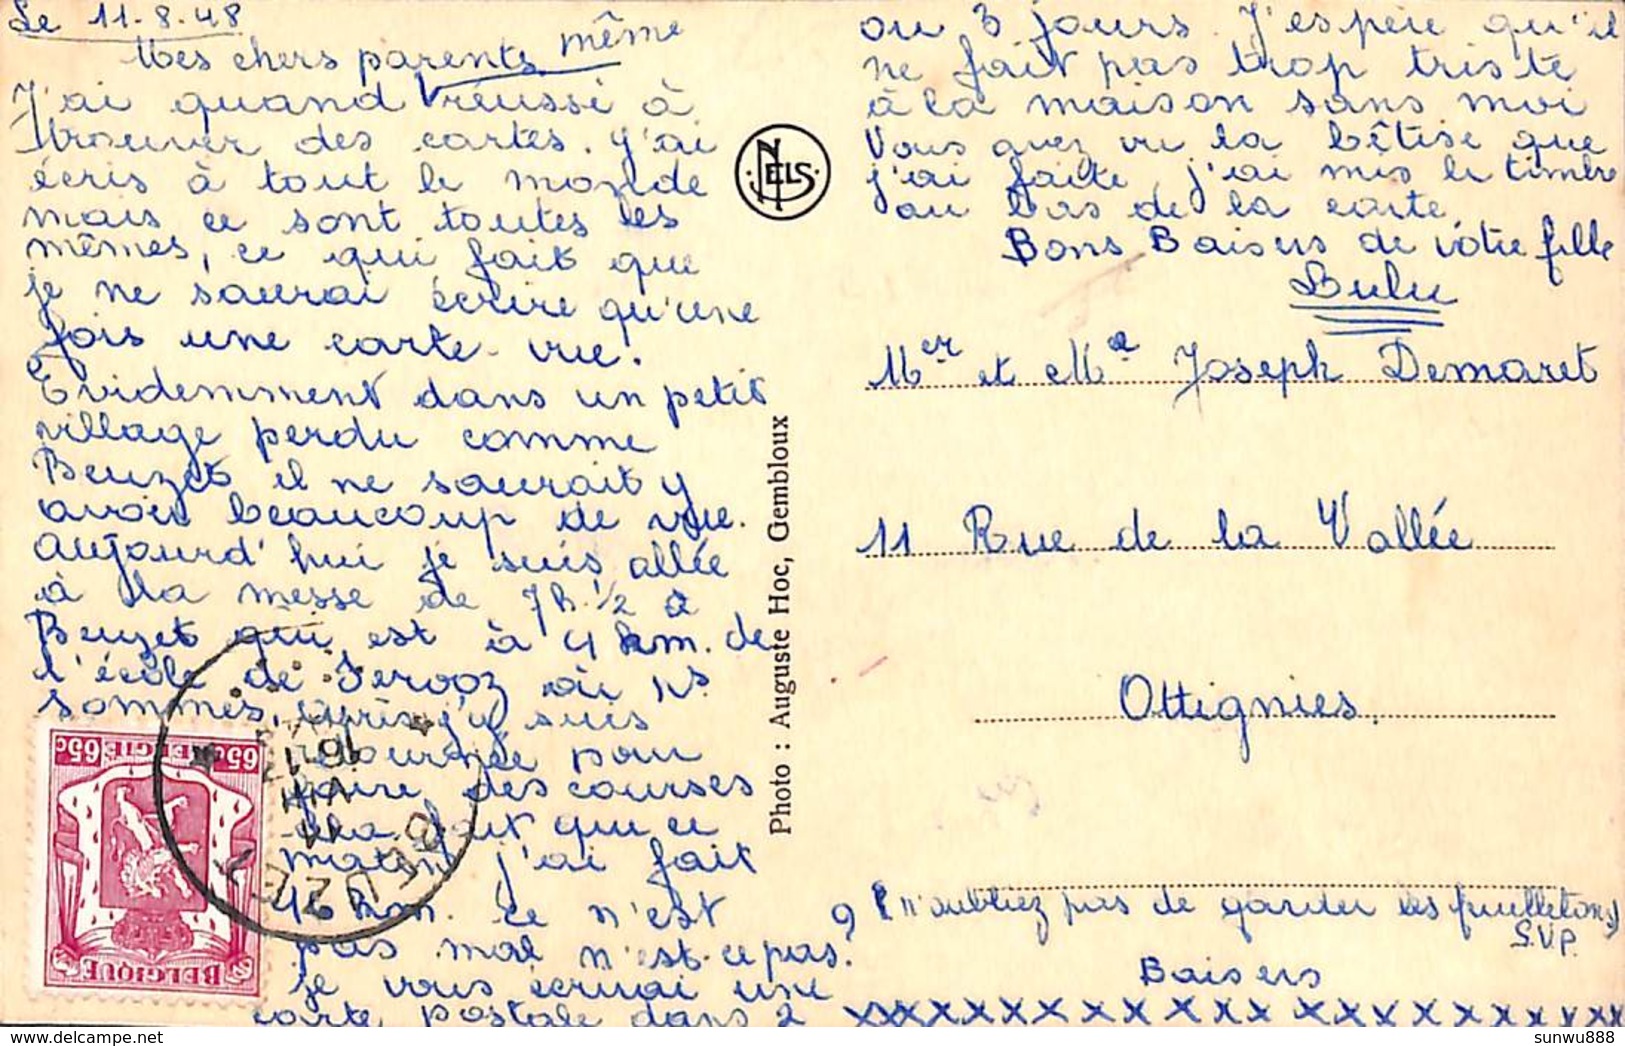 Le 11-8-48
Mes chers parents
même
J'ai quand réussi à
trouver des cartes. J'ai
écris à tout le monde
mais ce sont toutes les
mêmes, ce qui fait que
je ne saurai écrire qu'une
fois une carte-vue.
Evidemment dans un petit
village perdu comme
Beuzet il ne saurait y
avoir beaucoup de vue.
Aujourd'hui je suis allée
à la messe de 7h 1/2 à
Beuzet qui est à 4 km. de
l'école de Ferooz où ns
sommes, après j'y suis
retournée pour
faire des courses
cela fait que ce
matin j'ai fait
16 km. ce n'est
pas mal n'est-ce pas?
Je vous écrirai une
carte postale dans 2
ou 3 jours. J'espère qu'il
ne fait pas trop triste
à la maison sans moi
Vous avez vu la bêtise que
j'ai faite, j'ai mis le timbre
au bas de la carte.
Bons Baisers de votre fille
Lulu
Mer et Me Joseph Demaret
11 Rue de la Vallée
Ottignies.
(n'oubliez pas de garder les feuilletons)
S.V.P.
Baisers
xxxxxxxxxxxxxxxxxxxx
NELS
Photo : Auguste Hoc, Gembloux
65c BELGIE 65c
BELGIQUE
BEUZET
sunwu888